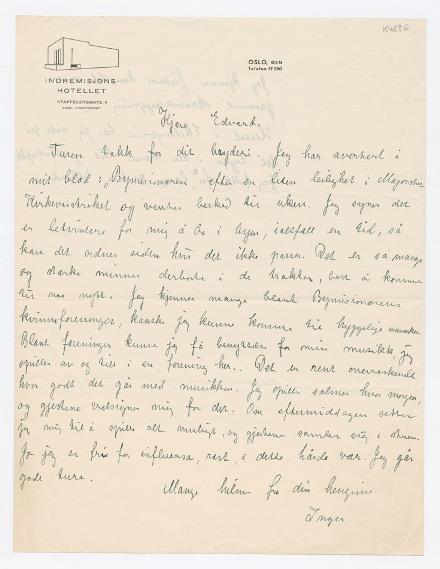 K4896
INDREMISJONS-
HOTELLET
STAFFELDTSGATE 4
OSLO, DEN
Telefon 17290
Kjere Edvard.
Tusen takk for dit bryderi. Jeg har avertert i
mit blad: "Bymisjonæren" efter en liten leilighet i Majorstu
Kirkeveistrøket og venter besked til uken. Jeg synes det
er lettvintere for mig å bo i byen, iallfall en tid, så
kan det ordnes siden hvis det ikke passer. Det er så mange
og sterke minner derborte i de trakter, best å komme
til noe nytt. Jeg kjenner mange blant Bymisjonærens
kvinneforeninger, kanske jeg kunne komme til hyggelige mennesker.
Blant foreninger kunne jeg få benyttelse for min musikk, jeg
spiller av og til i en forening her. Det er rent overraskende
hvor godt det går med musikken. Jeg spiller salmer hver morgen
og gjestene velsigner mig for det. Om eftermiddagen setter
jeg mig til å spille alt mulig, og gjestene samler sig i stuen.
Jo jeg er fri for influensa, rart, i dette hårde vær. Jeg går
gode ture.
Mange hilsen fra din hengivne
Inger.